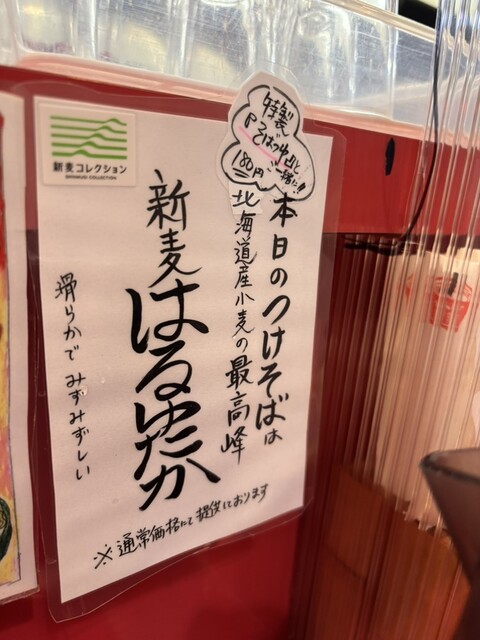 新麦コレクション
SHINMUGI COLLECTION
特製
『そばつゆ』と
一緒に!!
180円
本日のつけそばは
北海道産小麦の最高峰
新麦
はるゆたか
滑らかでみずみずしい
※通常価格にて提供しております